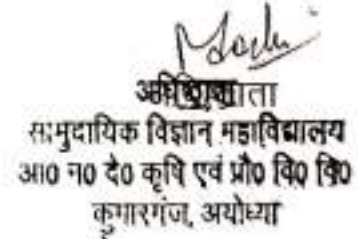 अधिष्ठाता
सामुदायिक विज्ञान महाविद्यालय
आ0 न0 दे0 कृषि एवं प्रौ0 वि0 वि0
कुमारगंज, अयोध्या